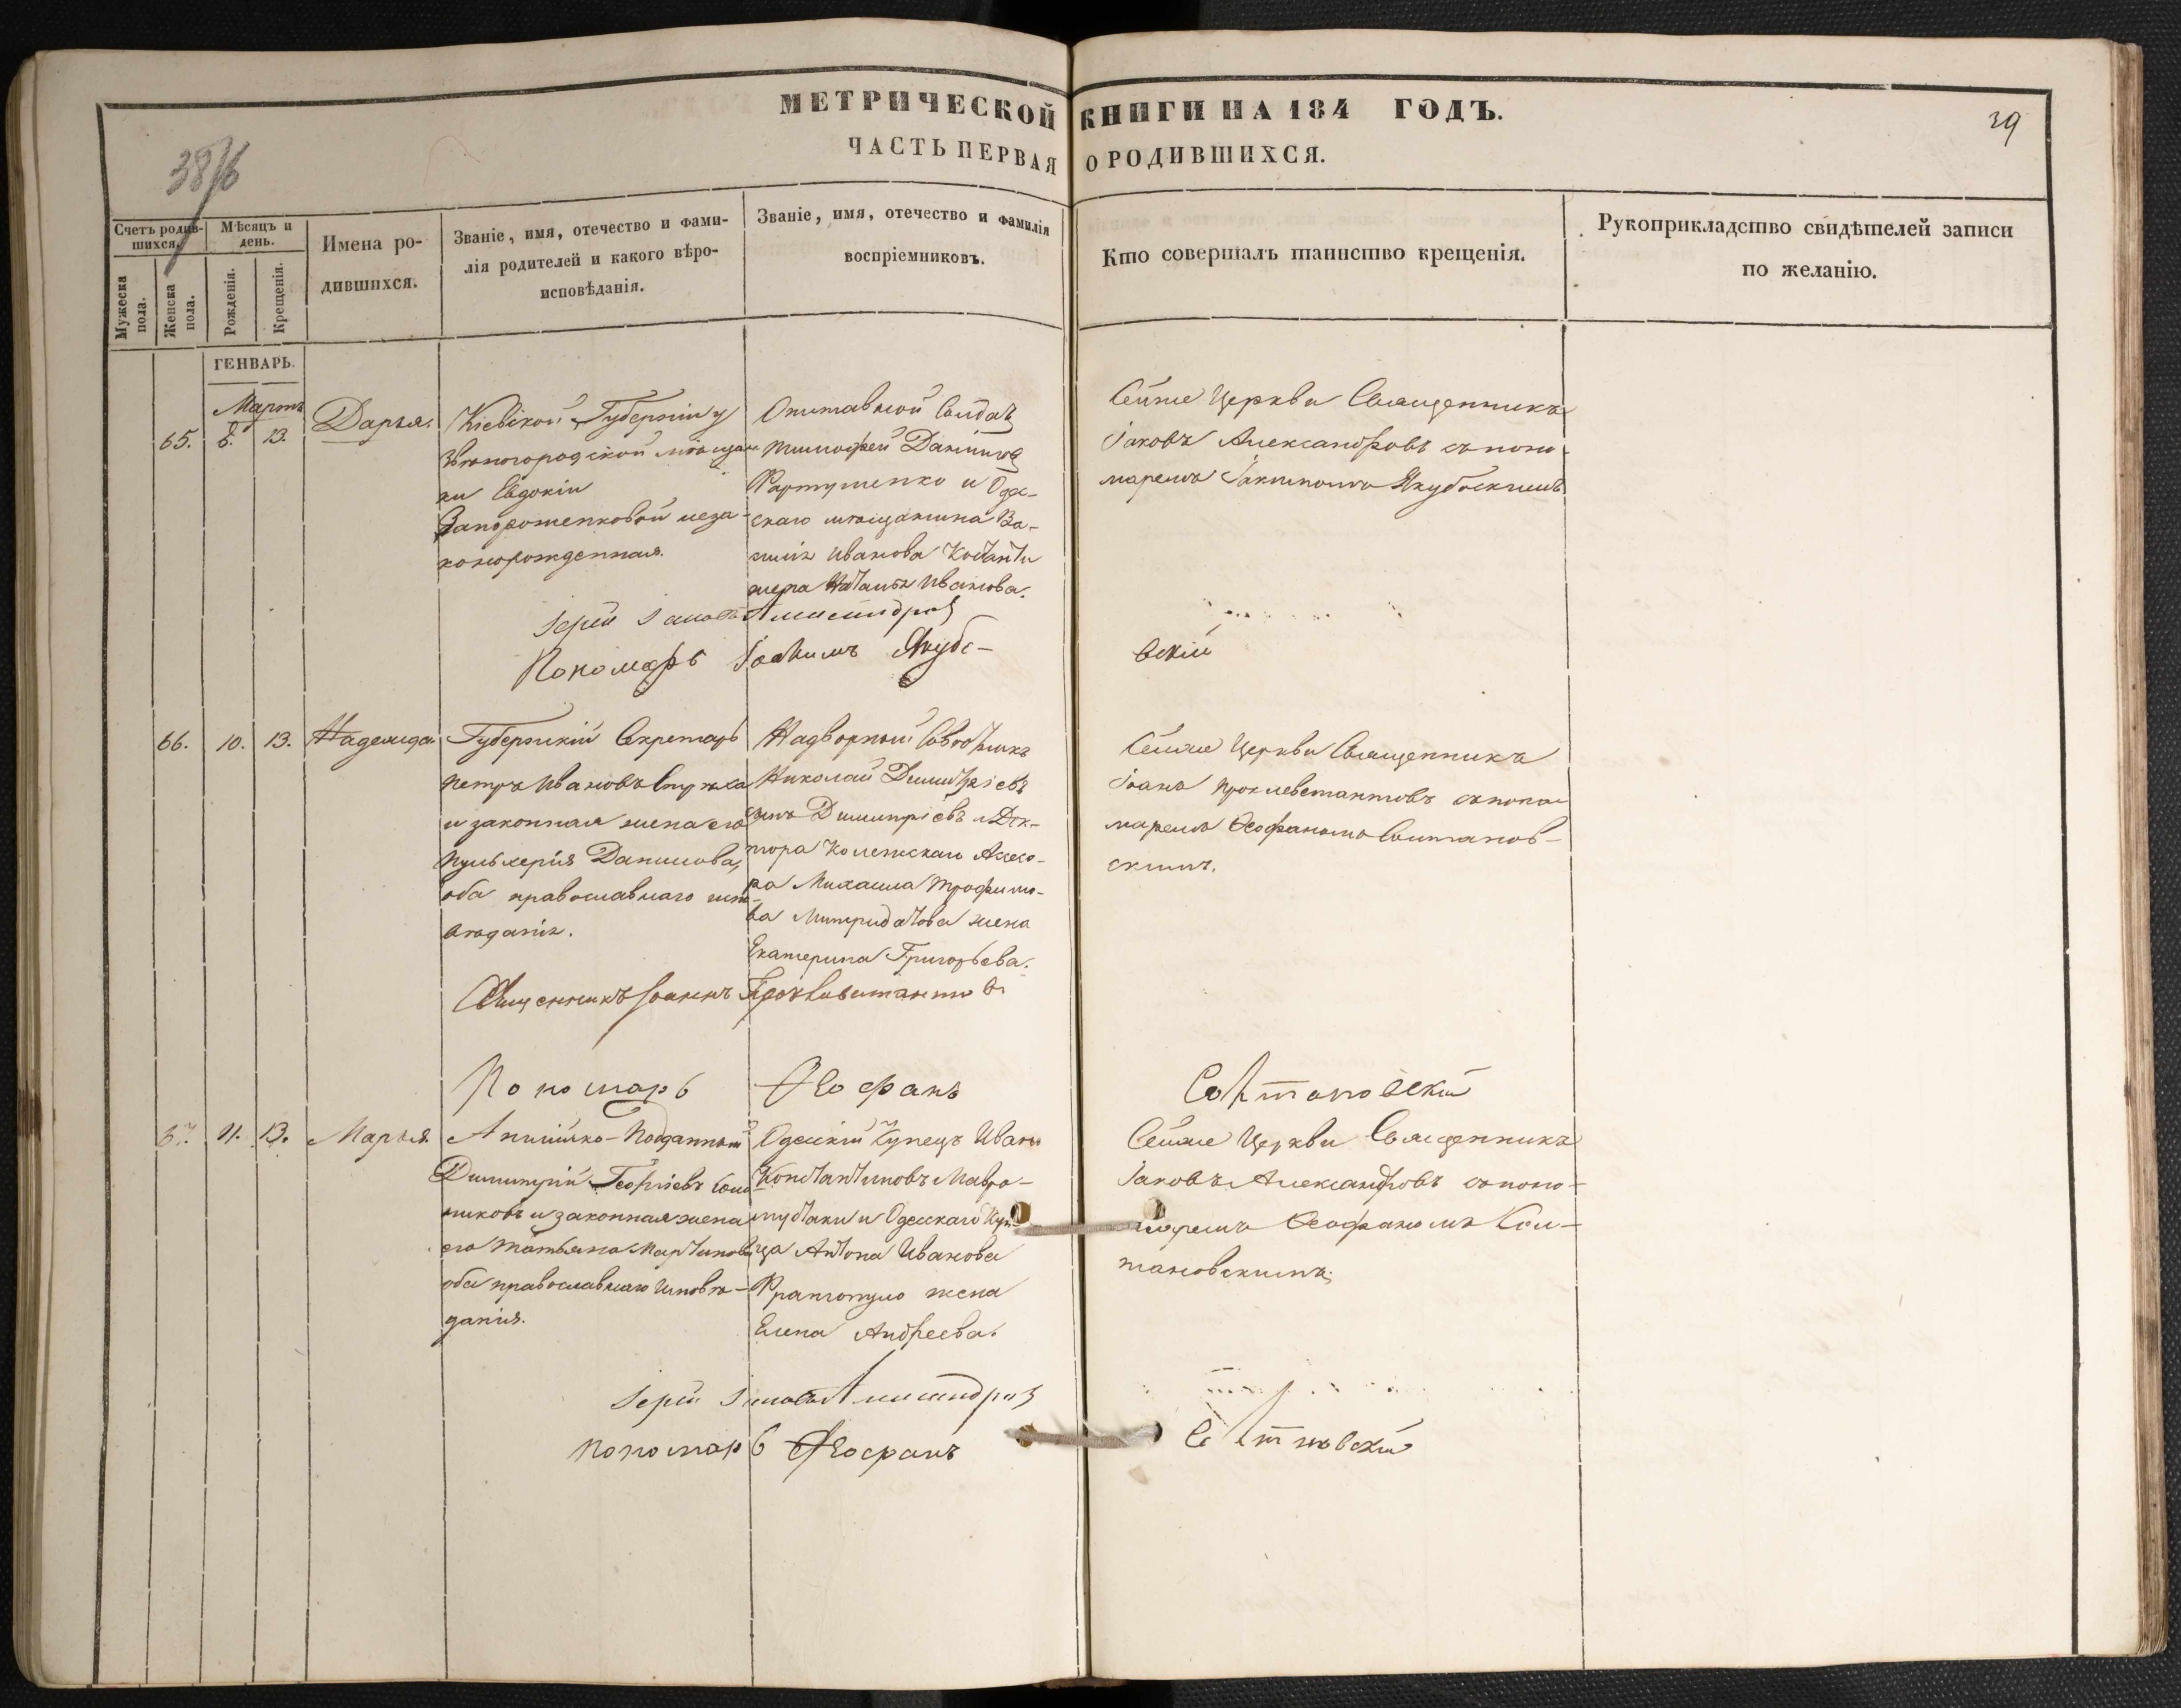 МЕТРИЧЕСКОЙ КНИГИ НА 184 ГОДЪ.
39
ЧАСТЬ ПЕРВАЯ О РОДИВШИХСЯ.
Счетъ родив-
шихся.
Мужеска пола.
Женска пола.
Мѣсяцъ и
день.
Рожденія.
Крещенія.
Имена ро-
дившихся.
Званіе, имя, отечество и фами-
лія родителей и какого вѣро-
исповѣданія.
Званіе, имя, отечество и фамилія
воспріемниковъ.
Кто совершалъ таинство крещенія.
Рукоприкладство свидѣтелей записи
по желанію.
ГЕНВАРЬ.
Мартъ
65. 8. 13. Дарья.
Кіевской Губерніи у
Звѣногородской мѣщан
ки Евдокіи
Запорожепковой неза-
конорожденная.
Отставной Солдатъ
Тимофей Даніиловъ
и Одес-
скаго мѣщанина Ва-
силія Иванова
Наталья Иванова.
Сейже Церкви Священникъ
Іаковъ Александровъ съ поно-
маремъ Іакимомъ Якубовскимъ
Іерей Іаковъ Александровъ
Пономарь Іоакимъ Якубо-
вскій
66. 10. 13. Надежда
Губернскій Секретарь
Петръ Ивановъ
и законная жена его
Пульхерія Данилова,
оба православнаго испо-
вѣданія.
Надворный Совѣтникъ
Николай Димитріевъ
сынъ Димитріевъ и Док-
тора Колежскаго Ассесо-
ра Михаила Трофимо-
ва Митридатова жена
Екатерина Григорьева.
Сейже Церкви Священникъ
Іоанъ съ поно-
маремъ Ѳеофаномъ Солтанов-
скимъ.
Священникъ Іоаннъ
Пономарь Ѳеофанъ Солтановскій
67. 11. 13. Марья.
Димитрій Георгіевъ
никовъ и законная жена
его Татьяна Мартинова
оба православнаго исповѣ-
данія.
Одесскій Купецъ Иванъ
Константиновъ Мавро-
и Одесскаго Куп-
ца Антона Иванова
жена
Елена Андреева.
Сейже Церкви Священникъ
Іаковъ Александровъ съ поно-
маремъ Ѳеофаномъ Сол-
тановскимъ.
Іерей Іаковъ Александровъ
пономарь Ѳеофанъ Солтановскій